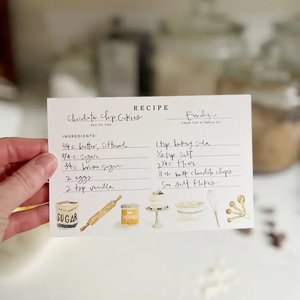 RECIPE
Chocolate Chip Cookies
Emily
RECIPE FOR
FROM THE KITCHEN OF
INGREDIENTS:
3/4 c butter, softened
3/4 c sugar
3/4 c brown sugar
2 eggs
2 tsp vanilla
1 tsp baking soda
1/2 tsp salt
2 3/4 c flour
11 oz milk chocolate chips
Sea salt flakes
SUGAR
HONEY